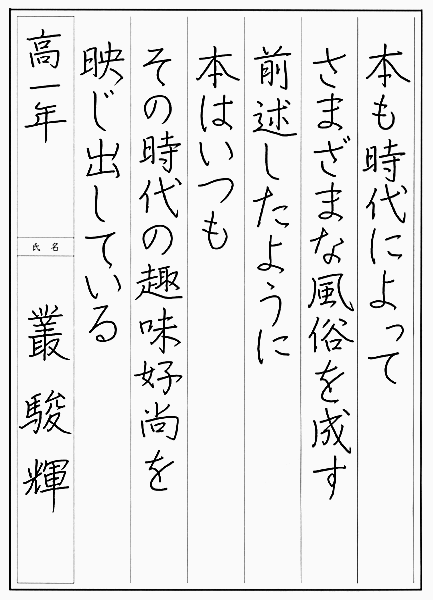 本も時代によって
さまざまな風俗を成す
前述したように
本はいつも
その時代の趣味好尚を
映じ出している
高一年
氏名
叢駿輝